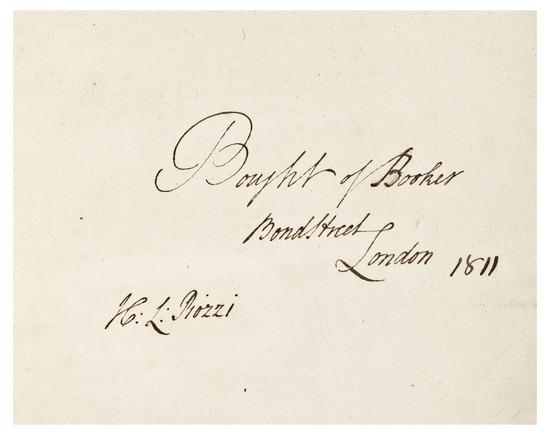 Bought of Booker
Bondstreet
London 1811
H: L: Piozzi